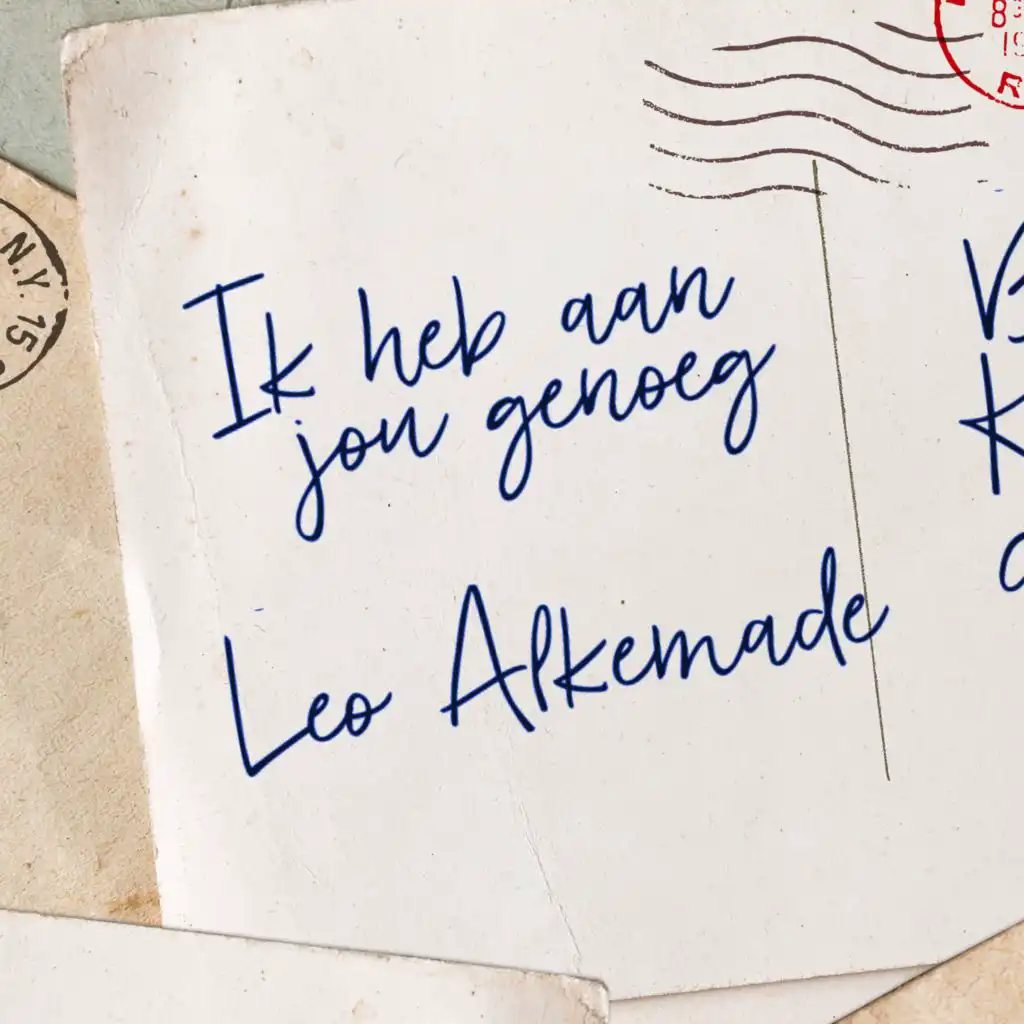 Ik heb aan
jou genoeg
Leo Alkemade
N.Y. 15